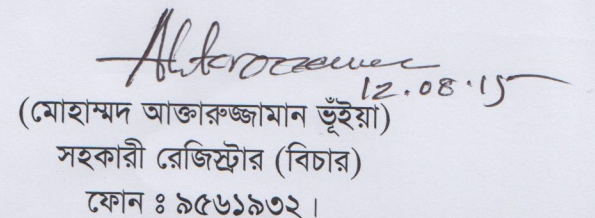 Akterozzaman
12.08.15
(মোহাম্মদ আক্তারুজ্জামান ভূঁইয়া)
সহকারী রেজিস্ট্রার (বিচার)
ফোন ঃ ৯৫৬১৯৩২।